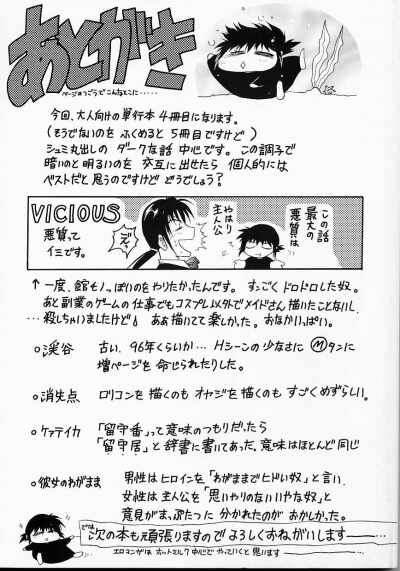 あとがき
ページのつごうでこんなとこに‥‥‥
今回、大人向けの単行本 4冊目になります。
(そうでないのを ふくめると 5冊目ですけど)
シュミ丸出しの ダークな話 中心です。この調子で
暗いのと明るいのを 交互に出せたら 個人的には
ベストだと思うのですけど どうでしょう?
VICIOUS
悪質って
イミです。
やはり
主人公
この話
最大の
悪質は
↑ 一度、館ものっぽいのをやりたかったんです。すっごくドロドロした奴。
あと副業のゲームの仕事でもコスプレ以外でメイドさん描いたことないし、
…殺しちゃいましたけど。ああ描いてて楽しかった。おなかいっぱい。
○渓谷
古い、96年くらいか… Hシーンの少なさに Mタンに
増ページを 命じられたりした。
○消失点
ロリコンを 描くのも オヤジを 描くのも すごくめずらしい。
○ケアテイカ
「留守番」って意味のつもりだったら
「留守居」と 辞書に書いてあった、意味はほとんど同じ
○彼女のわがまま
男性は ヒロインを「わがままでヒドい奴」と 言い、
女性は 主人公を「思いやりのない いやな奴」と
意見が まっぷたつに 分かれたのが おかしかった。
では 次の本も頑張りますので よろしくおねがいします
エロマンガは ホットミルク 中心で やっていくと 思います